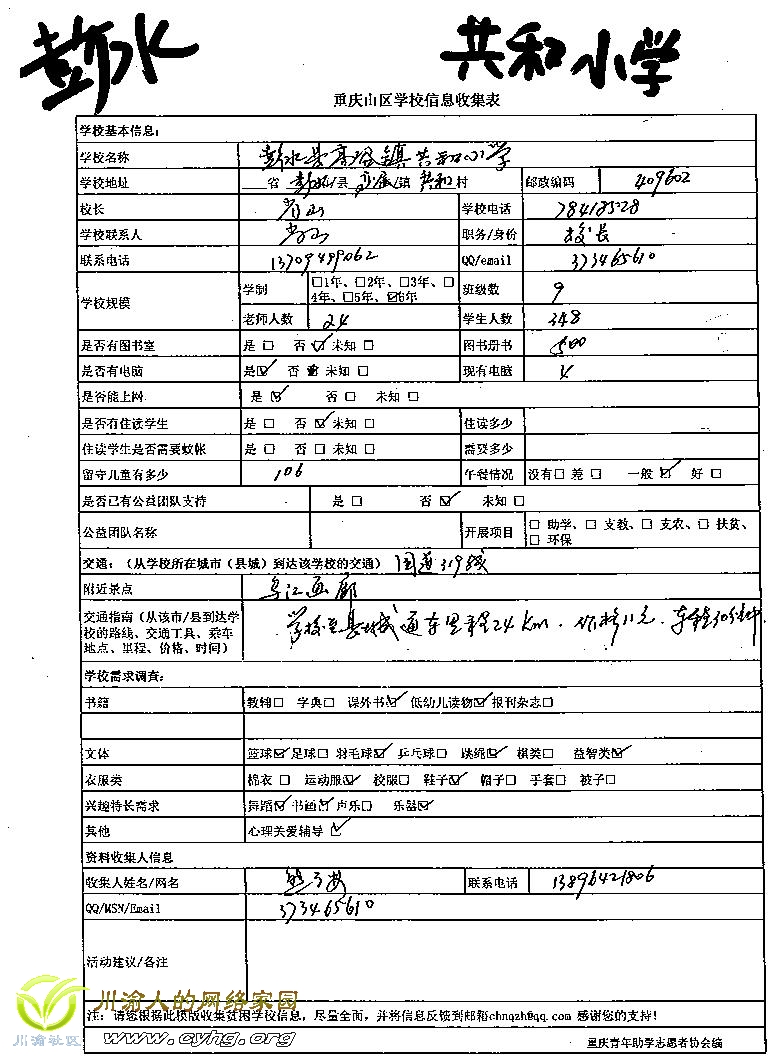 彭水 共和小学
重庆山区学校信息收集表
学校基本信息:
学校名称 彭水县高谷镇共和小学
学校地址 ___省 彭水/县 高谷/镇 共和村 邮政编码 409602
校长 学校电话 78418528
学校联系人 职务/身份 校长
联系电话 13709499062 QQ/email 373465610
学校规模 学制 □1年、□2年、□3年、□
4年、□5年、☑6年 班级数 9
老师人数 24 学生人数 348
是否有图书室 是 □ 否 ☑ 未知 □ 图书册书 500
是否有电脑 是☑ 否 未知 □ 现有电脑 4
是否能上网 是 ☑ 否 □ 未知 □
是否有住读学生 是 □ 否 ☑ 未知 □ 住读多少
住读学生是否需要蚊帐 是 □ 否 □ 未知 □ 需要多少
留守儿童有多少 106 午餐情况 没有□ 差 □ 一般 ☑ 好 □
是否已有公益团队支持 是 □ 否 ☑ 未知 □
公益团队名称 开展项目 □ 助学、□ 支教、□ 支农、□ 扶贫、
□ 环保
交通:(从学校所在城市(县城)到达该学校的交通) 国道319线
附近景点 乌江画廊
交通指南(从该市/县到达学
校的路线、交通工具、乘车
地点、里程、价格、时间) 学校至县城通车里程24km. 价格11元. 车程30分钟
学校需求调查:
书籍 教辅□ 字典□ 课外书☑ 低幼儿读物☑ 报刊杂志□
文体 篮球☑ 足球□ 羽毛球☑ 乒乓球□ 跳绳☑ 棋类□ 益智类☑
衣服类 棉衣 □ 运动服☑ 校服□ 鞋子☑ 帽子□ 手套□ 被子□
兴趣特长需求 舞蹈☑ 书画☑ 声乐□ 乐器☑
其他 心理关爱辅导 ☑
资料收集人信息
收集人姓名/网名 联系电话 13896421806
QQ/MSN/Email 373465610
活动建议/备注
川渝人的网络家园
注:请您根据此模版收集贫困学校信息,尽量全面,并将信息反馈到邮箱chnqzh@qq.com 感谢您的支持!
川渝社区 www.cyhg.org
重庆青年助学志愿者协会编